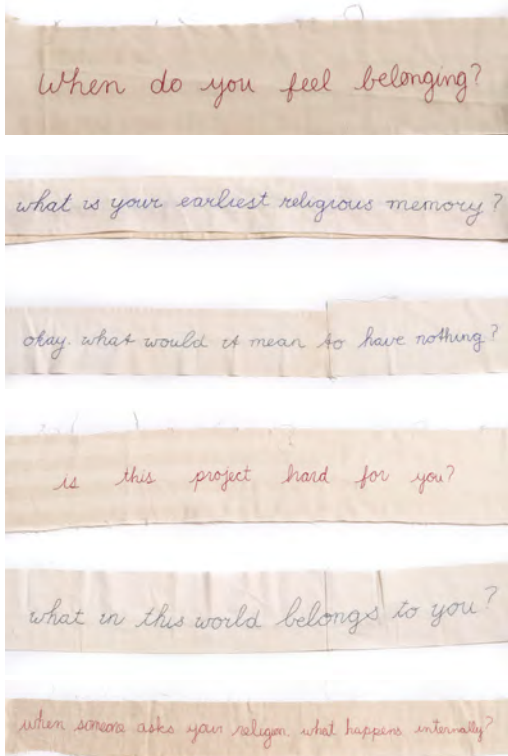 When do you feel belonging?
what is your earliest religious memory?
okay. what would it mean to have nothing?
is this project hard for you?
what in this world belongs to you?
when someone asks your religion. what happens internally?